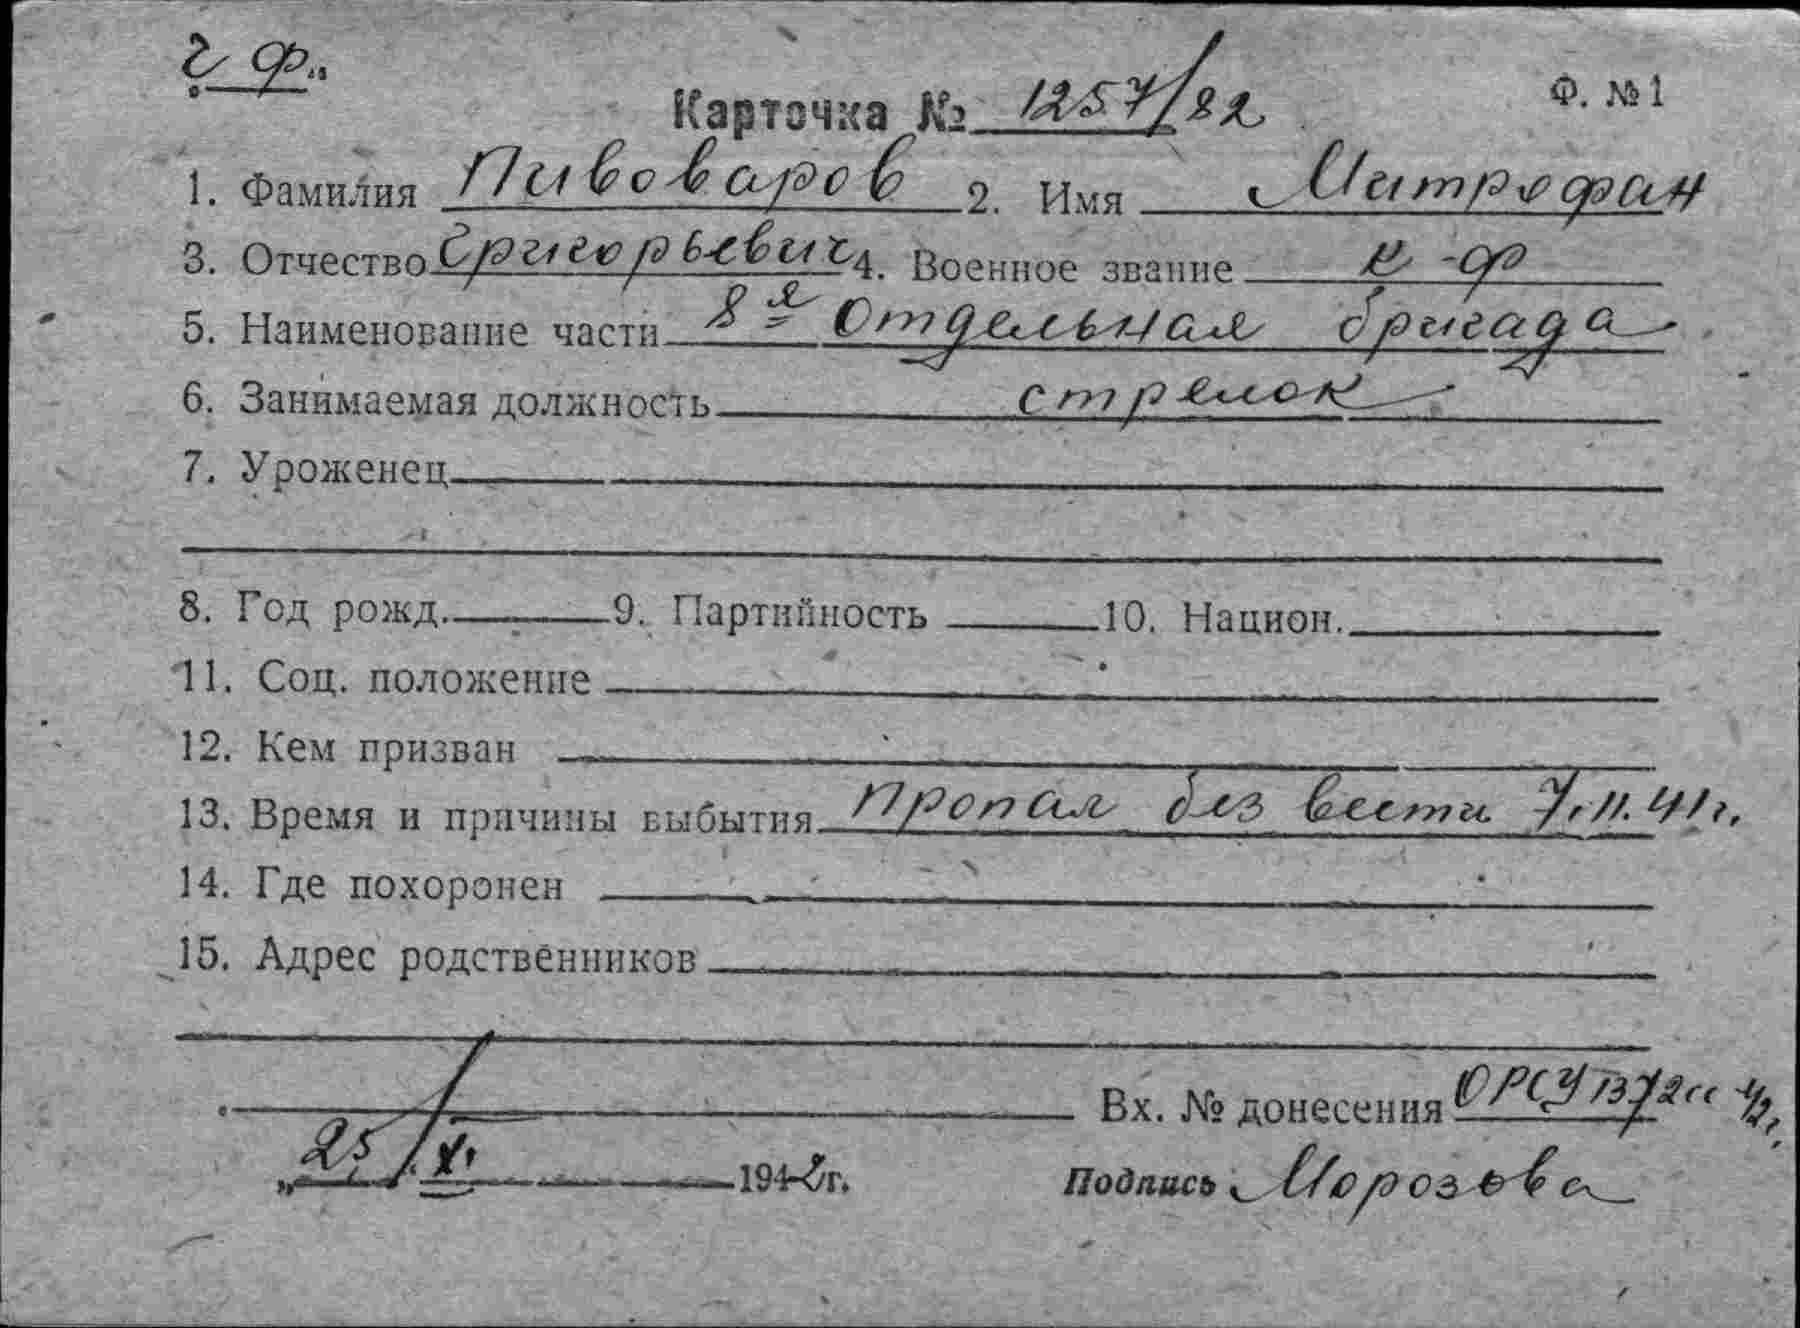 г ф.
Карточка № 1257/82 Ф. №1
1. Фамилия Пивоваров 2. Имя Митрофан
3. Отчество Григорьевич 4. Военное звание к-ф
5. Наименование части 8я отдельная бригада
6. Занимаемая должность стрелок
7. Уроженец
8. Год рожд. 9. Партийность 10. Национ.
11. Соц. положение
12. Кем призван
13. Время и причины выбытия Пропал без вести 7.11.41г.
14. Где похоронен
15. Адрес родственников
Вх. № донесения
„25/XI. 1942г. Подпись Морозова